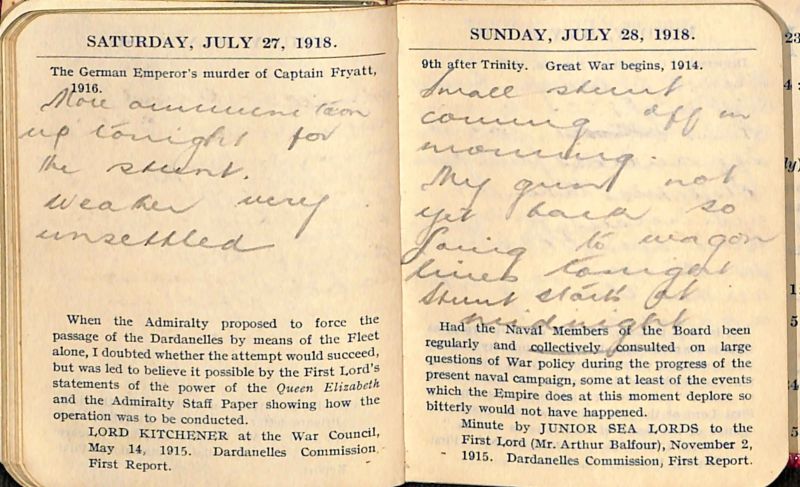 SATURDAY, JULY 27, 1918.
The German Emperor's murder of Captain Fryatt,
1916.
More ammunition
up tonight for
the stunt.
Weather very
unsettled
When the Admiralty proposed to force the
passage of the Dardanelles by means of the Fleet
alone, I doubted whether the attempt would succeed,
but was led to believe it possible by the First Lord's
statements of the power of the Queen Elizabeth
and the Admiralty Staff Paper showing how the
operation was to be conducted.
LORD KITCHENER at the War Council,
May 14, 1915. Dardanelles Commission
First Report.
SUNDAY, JULY 28, 1918.
9th after Trinity. Great War begins, 1914.
Small stunt
coming off in
morning.
My guns not
yet back so
going to wagon
lines tonight
Stunt starts at
midnight
Had the Naval Members of the Board been
regularly and collectively consulted on large
questions of War policy during the progress of the
present naval campaign, some at least of the events
which the Empire does at this moment deplore so
bitterly would not have happened.
Minute by JUNIOR SEA LORDS to the
First Lord (Mr. Arthur Balfour), November 2,
1915. Dardanelles Commission, First Report.